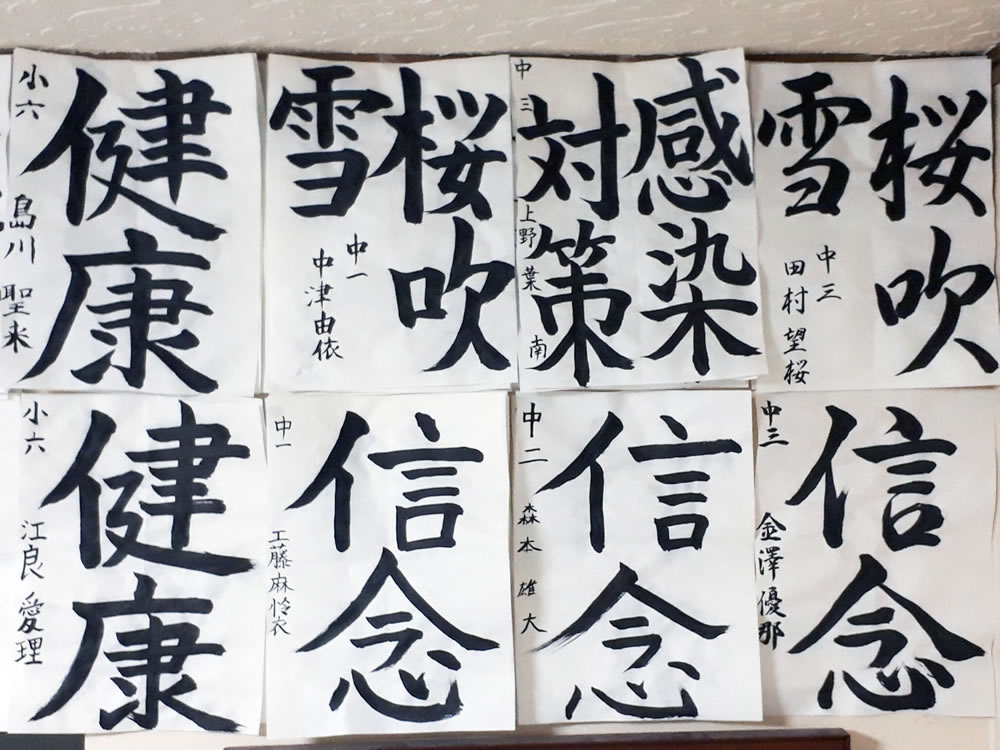 健康
小六 島川 聖来
桜吹
雪
中一
中津由依
感染
対策
中三 上野葉南
桜吹
雪
中三
田村望桜
健康
小六 江良愛理
信念
中一 工藤麻怜衣
信念
中二 森本雄大
信念
中三 金澤優那